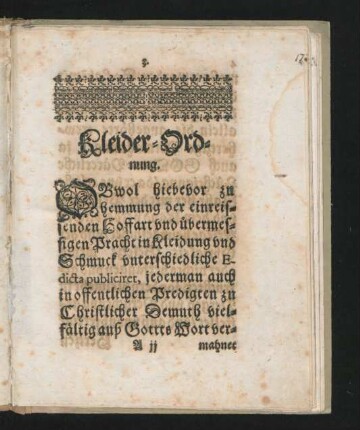 3.
Kleider-Ord-
nung.
OBwol hiebevor zu
hemmung der einreis-
senden Hoffart vnd übermes-
sigen Pracht in Kleidung vnd
Schmuck vnterschiedliche E-
dicta publiciret, jederman auch
in offentlichen Predigten zu
Christlicher Demuth viel-
fältig auß Gottts Wort ver-
A jj mahnet